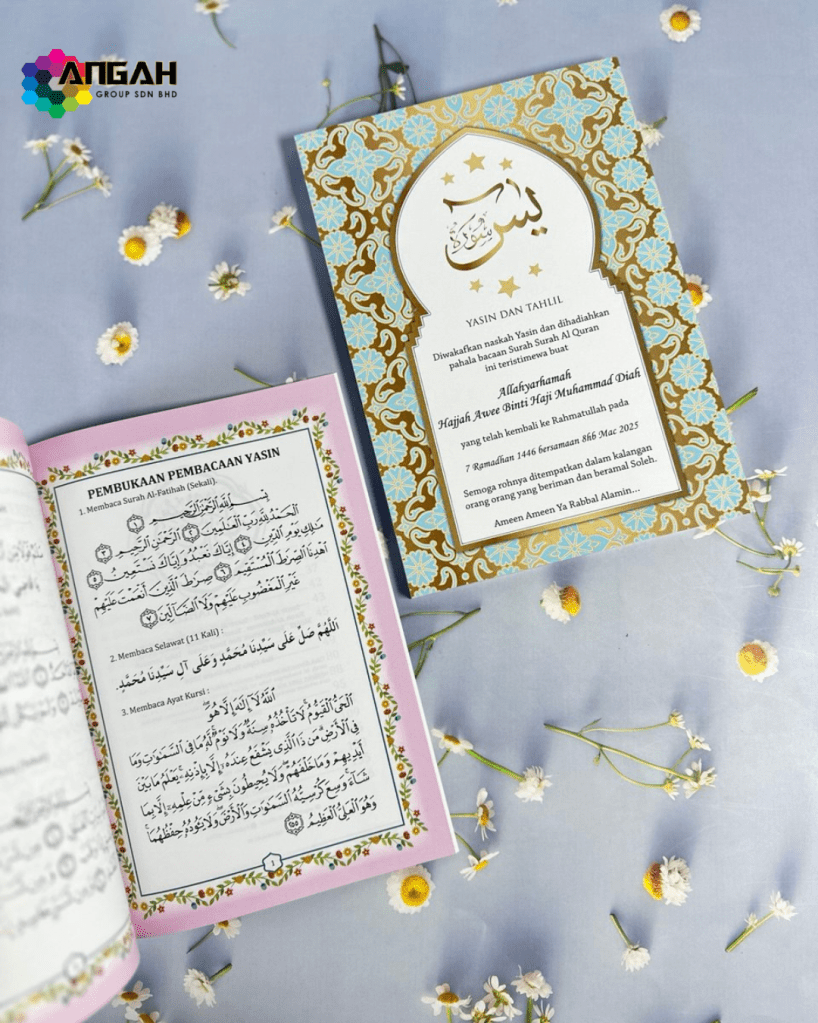 ANGAH
GROUP SDN BHD
يس
سورة
YASIN DAN TAHLIL
Diwakafkan naskah Yasin dan dihadiahkan
pahala bacaan Surah Surah Al Quran
ini teristimewa buat
Allahyarhamah
Hajjah Awee Binti Haji Muhammad Diah
yang telah kembali ke Rahmatullah pada
7 Ramadhan 1446 bersamaan 8hb Mac 2025
Semoga rohnya ditempatkan dalam kalangan
orang orang yang beriman dan beramal Soleh.
Ameen Ameen Ya Rabbal Alamin...
PEMBUKAAN PEMBACAAN YASIN
1. Membaca Surah Al-Fatihah (Sekali).
بِسْمِ اللَّهِ الرَّحْمَٰنِ الرَّحِيمِ ١
الْحَمْدُ لِلَّهِ رَبِّ الْعَالَمِينَ ٢ الرَّحْمَٰنِ الرَّحِيمِ ٣
مَالِكِ يَوْمِ الدِّينِ ٤ إِيَّاكَ نَعْبُدُ وَإِيَّاكَ نَسْتَعِينُ ٥
اهْدِنَا الصِّرَاطَ الْمُسْتَقِيمَ ٦ صِرَاطَ الَّذِينَ أَنْعَمْتَ عَلَيْهِمْ
غَيْرِ الْمَغْضُوبِ عَلَيْهِمْ وَلَا الضَّالِّينَ ٧
2. Membaca Selawat (11 Kali) :
اَللّٰهُمَّ صَلِّ عَلَى سَيِّدِنَا مُحَمَّدٍ وَعَلَى آلِ سَيِّدِنَا مُحَمَّدٍ.
3. Membaca Ayat Kursi :
اللَّهُ لَا إِلَٰهَ إِلَّا هُوَ
الْحَيُّ الْقَيُّومُ لَا تَأْخُذُهُ سِنَةٌ وَلَا نَوْمٌ لَهُ مَا فِي السَّمَاوَاتِ وَمَا
فِي الْأَرْضِ مَنْ ذَا الَّذِي يَشْفَعُ عِنْدَهُ إِلَّا بِإِذْنِهِ يَعْلَمُ مَا بَيْنَ
أَيْدِيهِمْ وَمَا خَلْفَهُمْ وَلَا يُحِيطُونَ بِشَيْءٍ مِنْ عِلْمِهِ إِلَّا بِمَا
شَاءَ وَسِعَ كُرْسِيُّهُ السَّمَاوَاتِ وَالْأَرْضَ وَلَا يَئُودُهُ حِفْظُهُمَا
وَهُوَ الْعَلِيُّ الْعَظِيمُ ٢٥٥
1